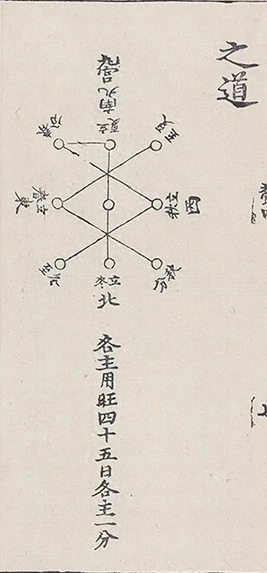 之道
九宮
南
立夏
夏至
春分
立秋
西
立春
東
冬至
立冬
北
秋分
各主用旺四十五日各主一分